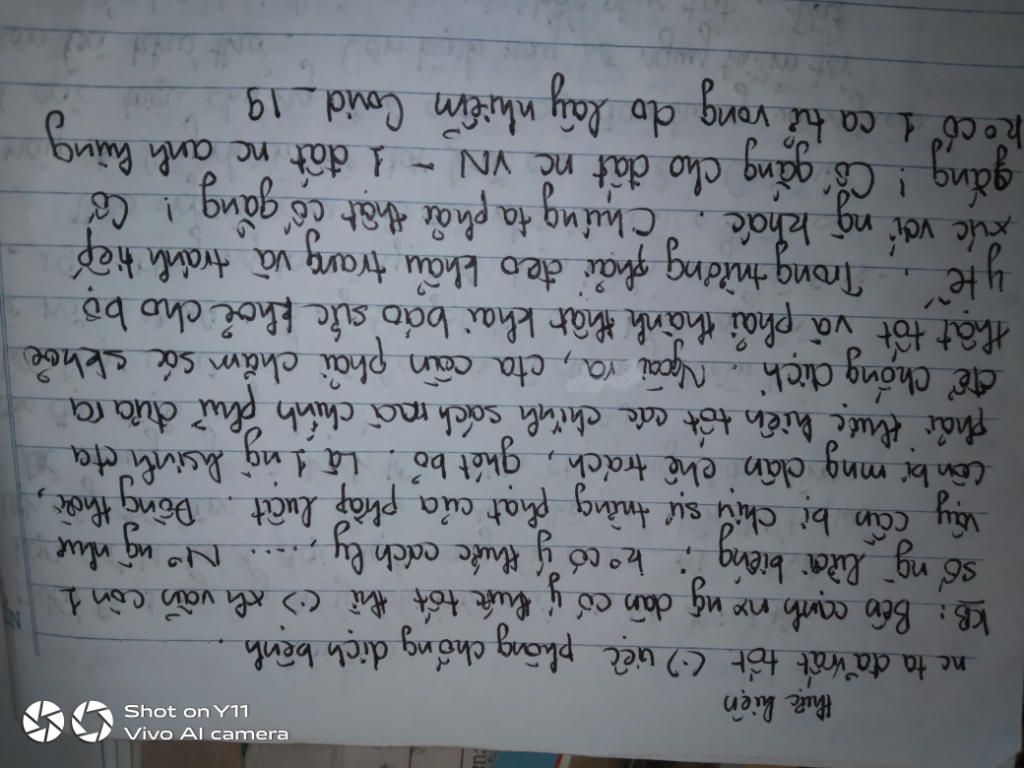 thực hiện
nc ta đã rất tốt (.) việc phòng chống dịch bệnh.
KB: Bên cạnh n~ ng dân có ý thức tốt thì (.) xh vẫn còn 1
số ng lười biếng, ko có ý thức cách ly,.... N~ ng như
vậy cần bị chịu sự trừng phạt của pháp luật. Đồng thời,
còn bị mng dân chê trách, ghét bỏ. Là 1 ng hsinh cta
phải thực hiện tốt các chính sách mà chính phủ đưa ra
để chống dịch. Ngoài ra, cta cần phải chăm sóc skhoẻ
thật tốt và phải thành thật khai báo sức khoẻ cho bộ
y tế. Trong trường phải đeo khẩu trang và tránh tiếp
xúc với ng khác. Chúng ta phải thật cố gắng! Cố
gắng! Cố gắng cho đất nc VN - 1 đất nc anh hùng
ko có 1 ca tử vong do lây nhiễm Covid_19
Shot on Y11
Vivo AI camera